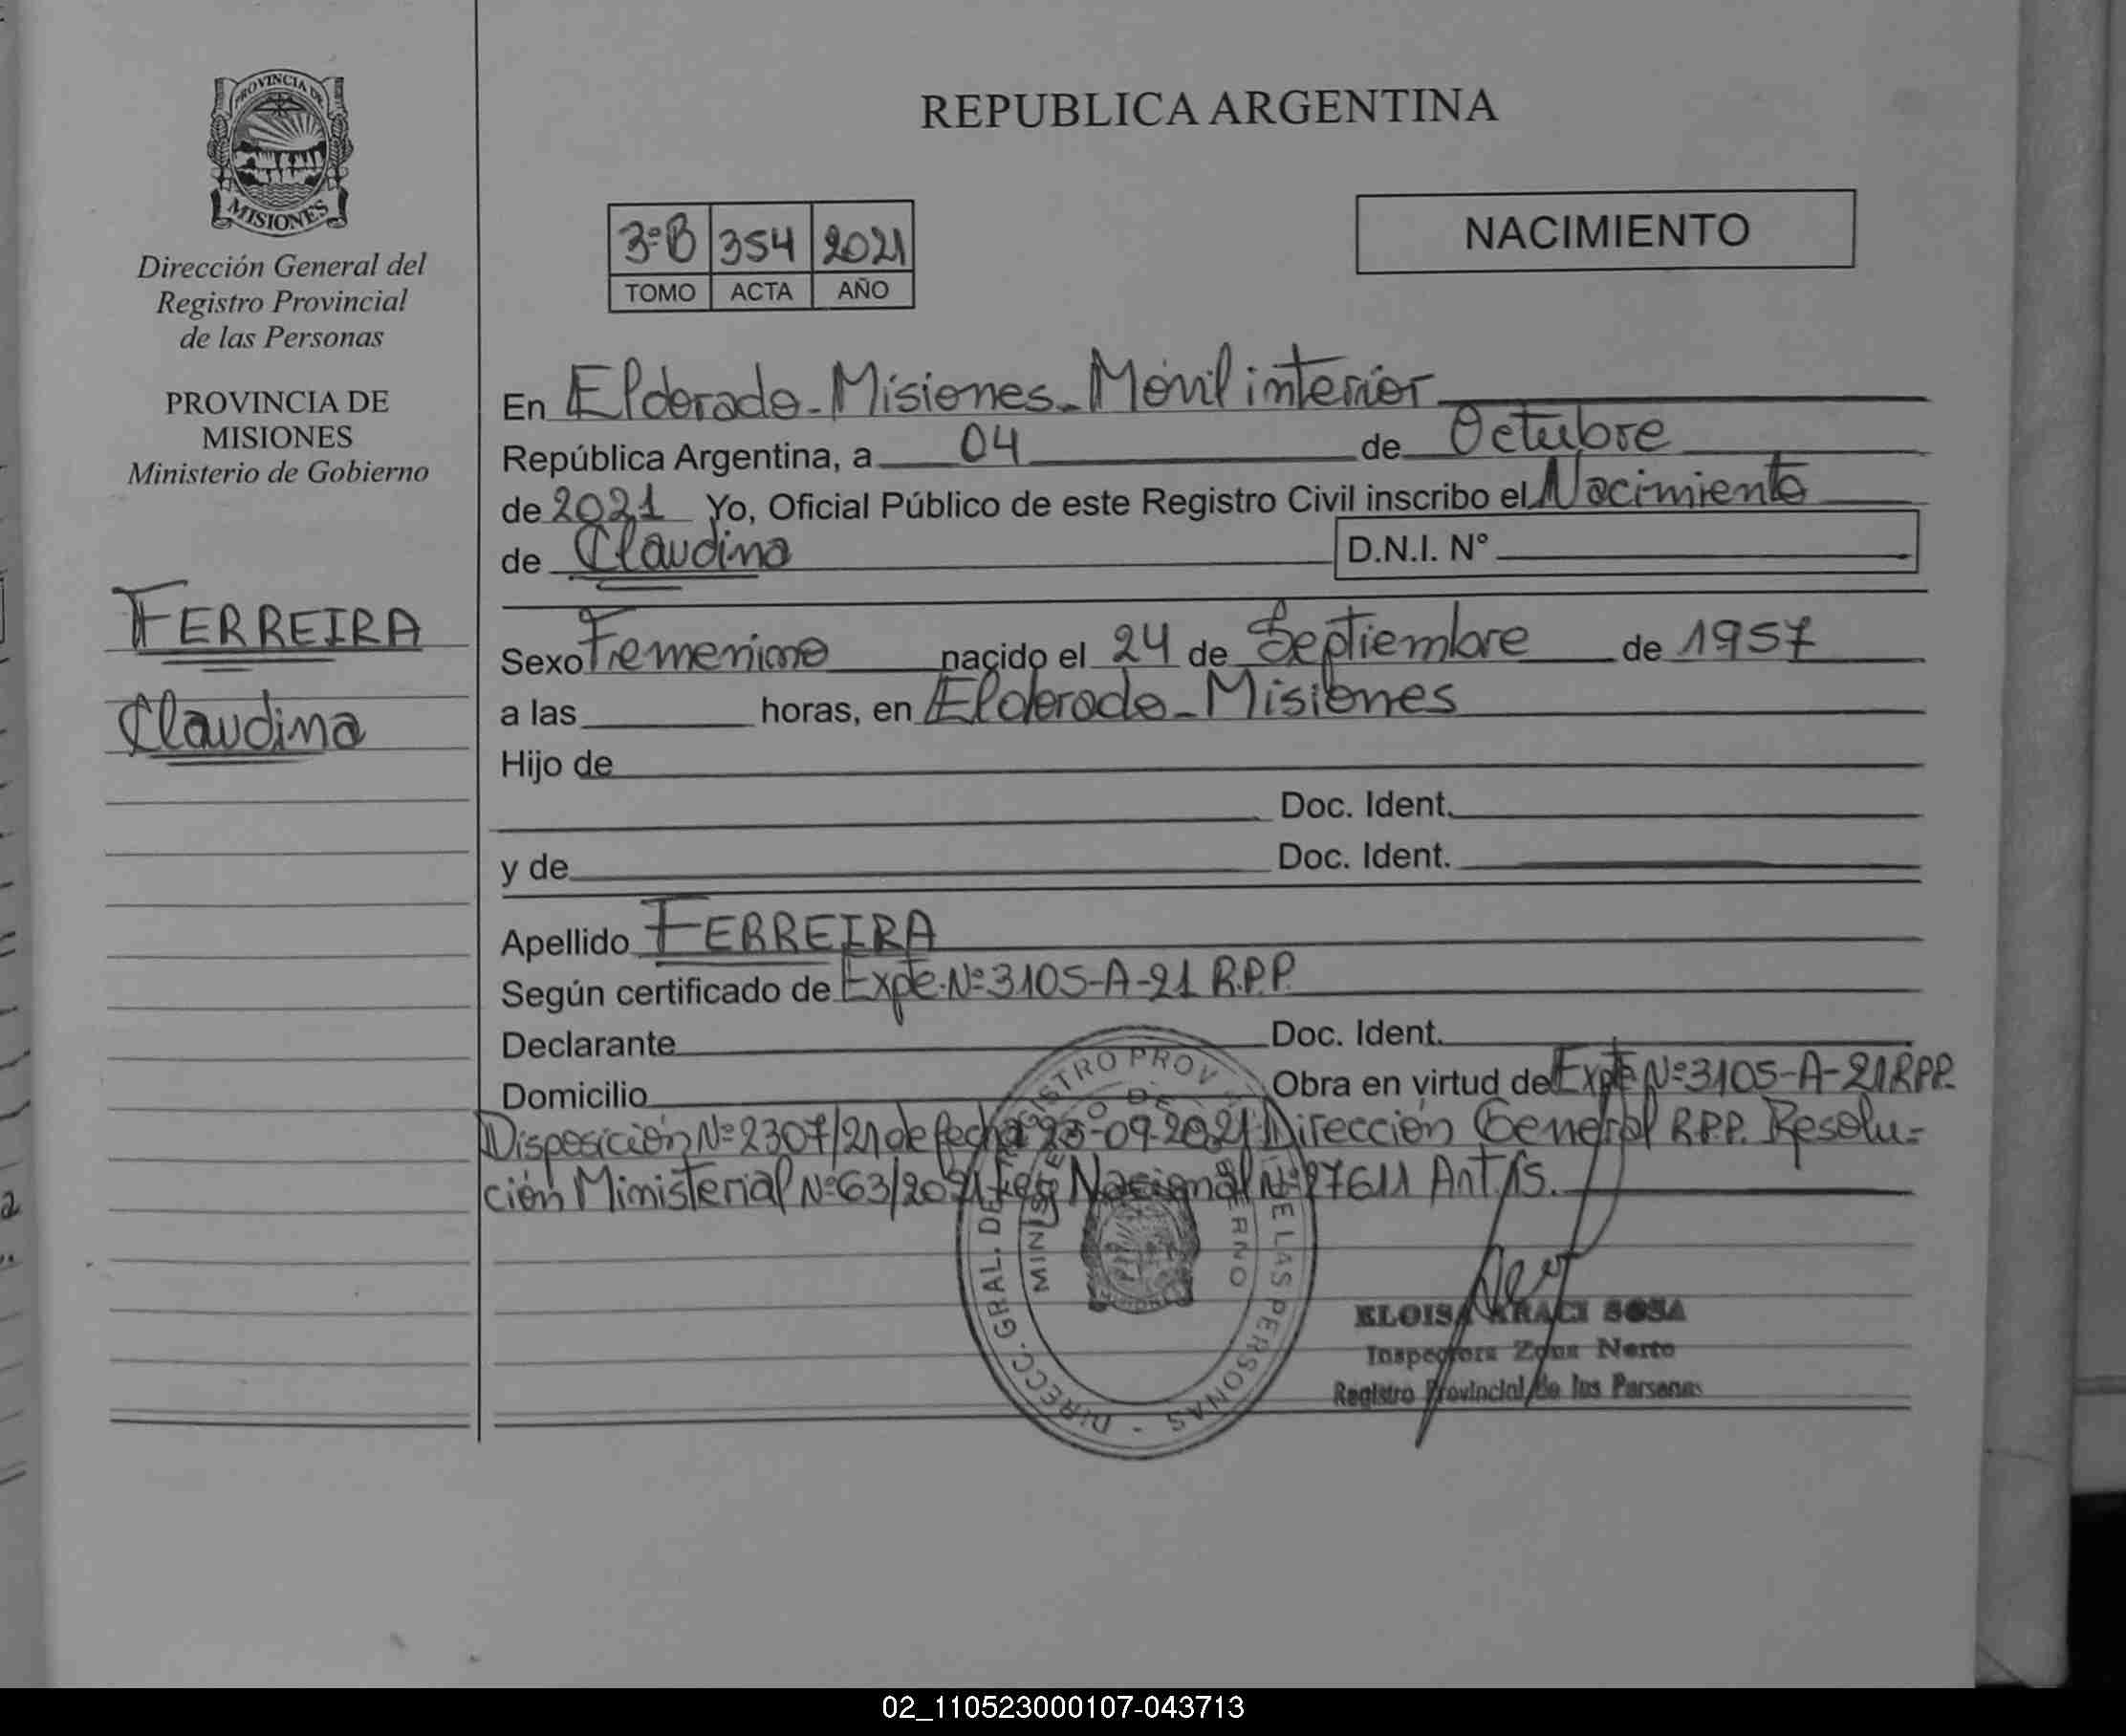 PROVINCIA DE
MISIONES
Dirección General del
Registro Provincial
de las Personas
PROVINCIA DE
MISIONES
Ministerio de Gobierno
FERREIRA
Claudina
REPUBLICA ARGENTINA
NACIMIENTO
3=B 354 2021
TOMO ACTA AÑO
En Eldorado - Misiones - Móvil interior
República Argentina, a 04 de Octubre
de 2021 Yo, Oficial Público de este Registro Civil inscribo el Nacimiento
de Claudina D.N.I. N°
Sexo Femenino nacido el 24 de Septiembre de 1957
a las horas, en Eldorado - Misiones
Hijo de
Doc. Ident.
y de Doc. Ident.
Apellido FERREIRA
Según certificado de Expte. Nº 3105-A-21 R.P.P.
Declarante Doc. Ident.
Domicilio Obra en virtud de Expte Nº 3105-A-21 RPP.
Disposición Nº 2307/21 de fecha -09-2021 Dirección General R.P.P. Resolu-
ción Ministerial Nº 63/2021 Ley Nacional Nº 27611 Art.
DIRECC. GRAL. DE REGISTRO PROV. DE LAS PERSONAS -
MINISTERIO DE GOBIERNO
ELOISA ARACI SOSA
Inspectora Zona Norte
Registro Provincial de las Personas
02_110523000107-043713